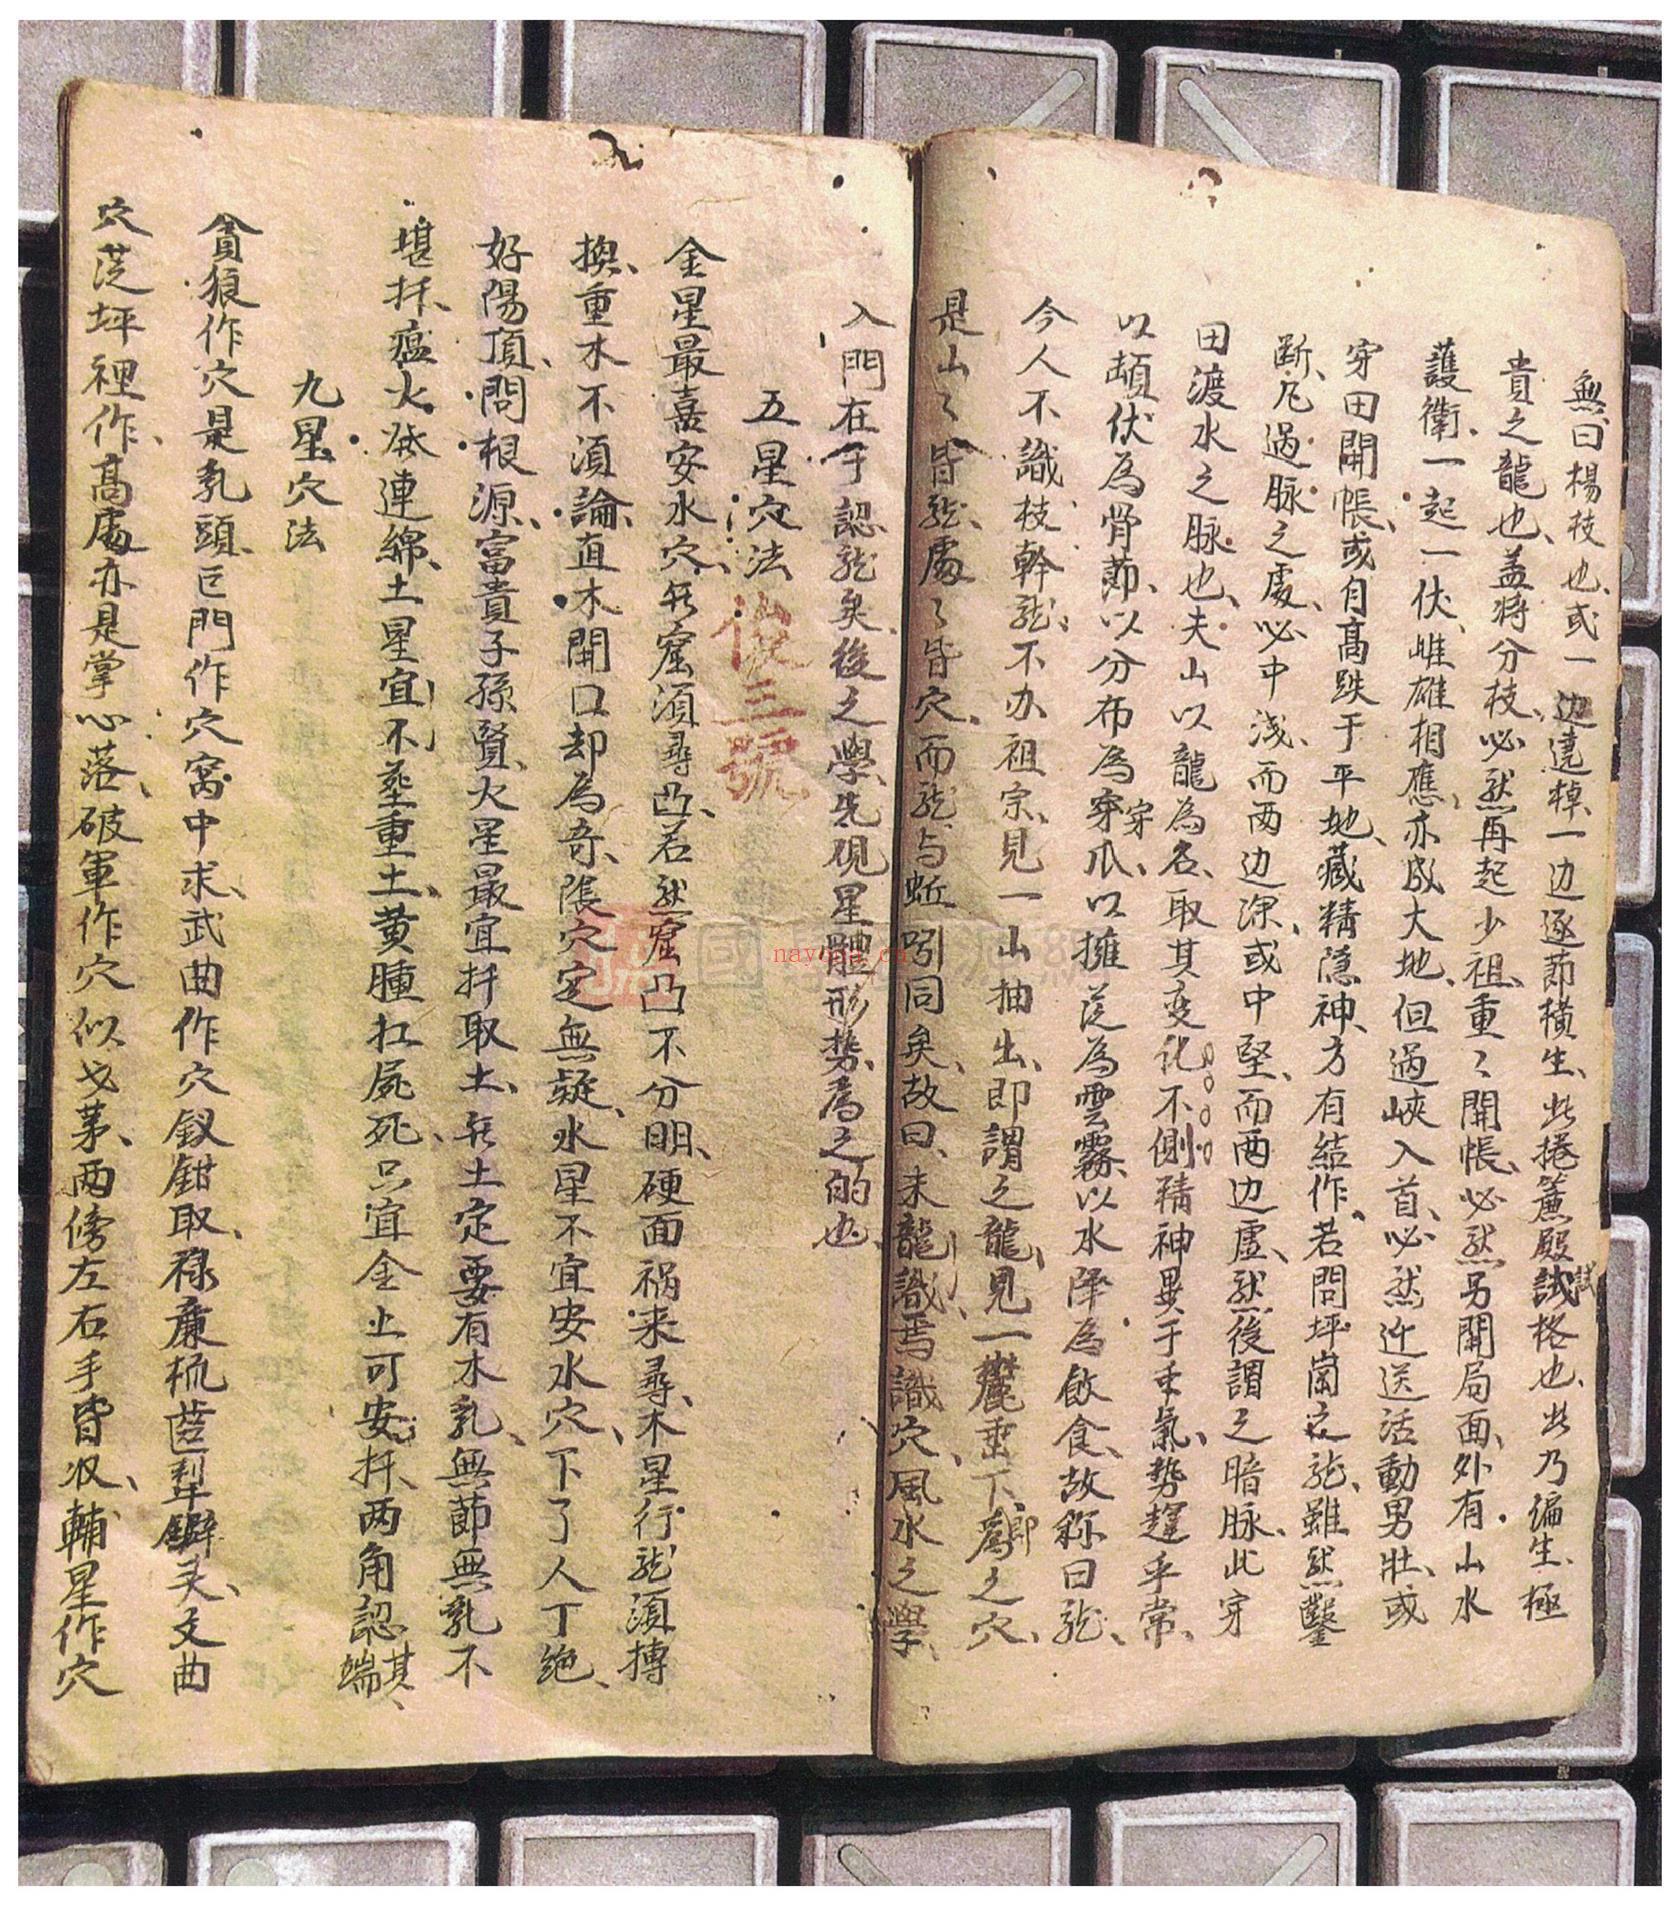 無、曰楊枝也、或一边遶棹、一边逐節橫生、此捲簾殿試格也、此乃偏生極
貴之龍也、盖將分枝、必然再起少祖、重〻開帳、必然另開局面、外有山水
護衛、一起一伏、雌雄相應、亦成大地、但過峽入首、必然迎送活動男壯、或
穿田開帳、或自高跌于平地、藏精隱神、方有結作、若問坪崗之龍、雖然鑿
断、凡過脉之處、必中浅、而两边深、或中堅、而两边虛、然後謂之暗脉、此穿
田渡水之脉也、夫山以龍為名、取其变化不側、精神異于重氣、势趕乎常、
以頓伏為骨節、以分布為穿爪、以擁從為雲霧、以水降為飲食、故称曰龍、
今人不識枝幹龍、不办祖宗、見一山抽出、即謂之龍、見一麓垂下、即為之穴、
是山〻皆龍、處〻皆穴、而龍与蚯蚓同矣、故曰、未龍識、焉識穴、風水之學、
入門在于認龍矣、後之學、先观星體形势、為之的也、
五星穴法
俊三號
金星最嘉安水穴、無窟須尋凸、若然窟凸不分明、硬面祸来尋、木星行龍須摶
換、重木不須論、直木開口却為奇、脹穴定無疑、水星不宜安水穴、下了人丁绝、
好陽頂、問根源、富貴子孫賢、火星最宜扦取土、無土定要有木乳、無節無乳不
堪扦、瘟火灾連綿、土星宜不葬重土、黄腫扛屍死、只宜金上可安扦、两角認其端
九星穴法
貪狼作穴是乳頭、巨門作穴窩中求、武曲作穴釵鉗取、禄廉梳齒犁鐴头、文曲
穴從坪裡作、高處亦是掌心落、破軍作穴似戈茅、两傍左右手皆収、輔星作穴
國學 nayona.cn